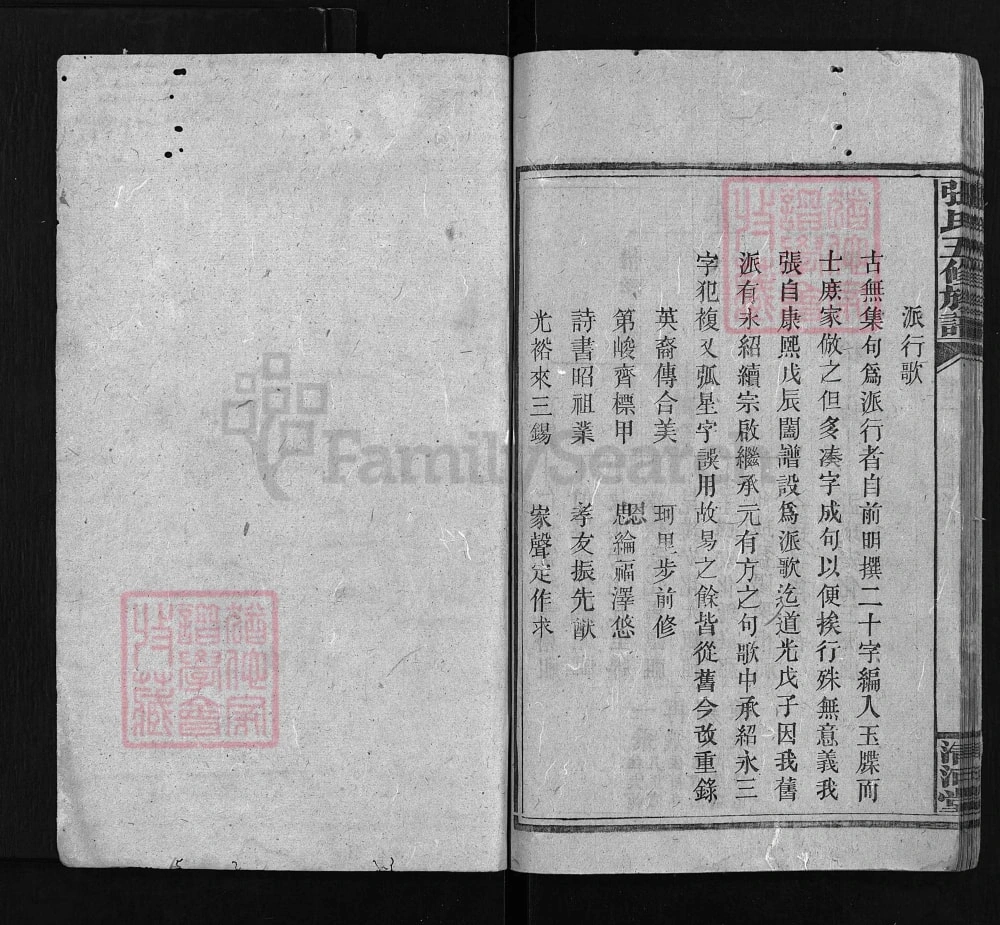 張氏五修族譜
清河堂
派行歌
古無集句為派行者自前明撰二十字編入玉牒而
士庶家倣之但多湊字成句以便挨行殊無意義我
張自康熙戊辰闔譜設為派歌迄道光戊子因我舊
派有永紹續宗啟繼承元有方之句歌中承紹永三
字犯複又弧星字誤用故易之餘皆從舊今改重錄
英裔傳合美 珂里步前修
第峻齊標甲 恩綸福澤悠
詩書昭祖業 孝友振先猷
光裕來三錫 家聲定作求
FamilySearch